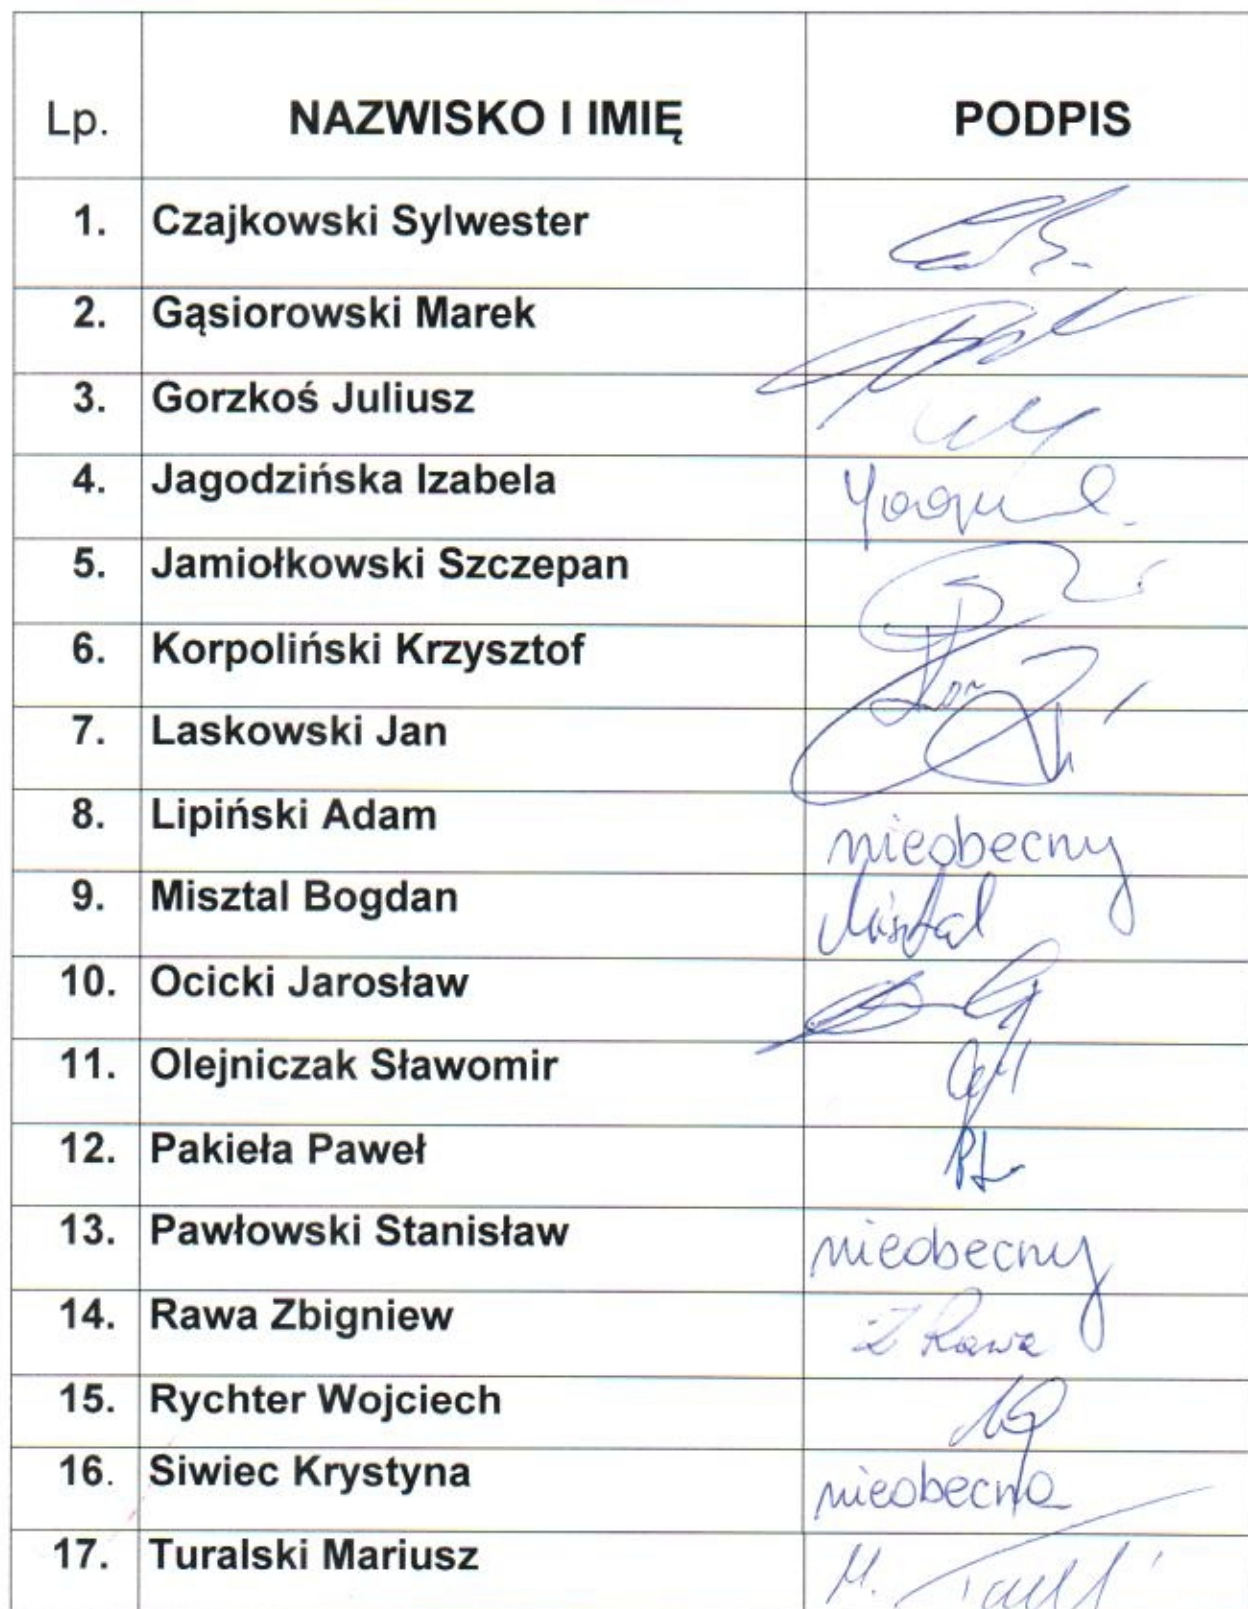 Lp. NAZWISKO I IMIĘ PODPIS
1. Czajkowski Sylwester
2. Gąsiorowski Marek
3. Gorzkoś Juliusz
4. Jagodzińska Izabela
5. Jamiołkowski Szczepan
6. Korpoliński Krzysztof
7. Laskowski Jan
8. Lipiński Adam nieobecny
9. Misztal Bogdan Misztal
10. Ocicki Jarosław
11. Olejniczak Sławomir
12. Pakieła Paweł
13. Pawłowski Stanisław nieobecny
14. Rawa Zbigniew Z Rawa
15. Rychter Wojciech
16. Siwiec Krystyna nieobecna
17. Turalski Mariusz M.